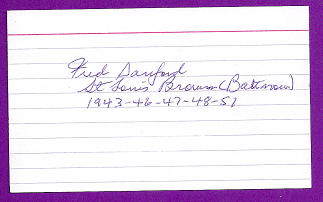 Fred Sanford
St Louis Browns (Baltimore)
1943-46-47-48-51